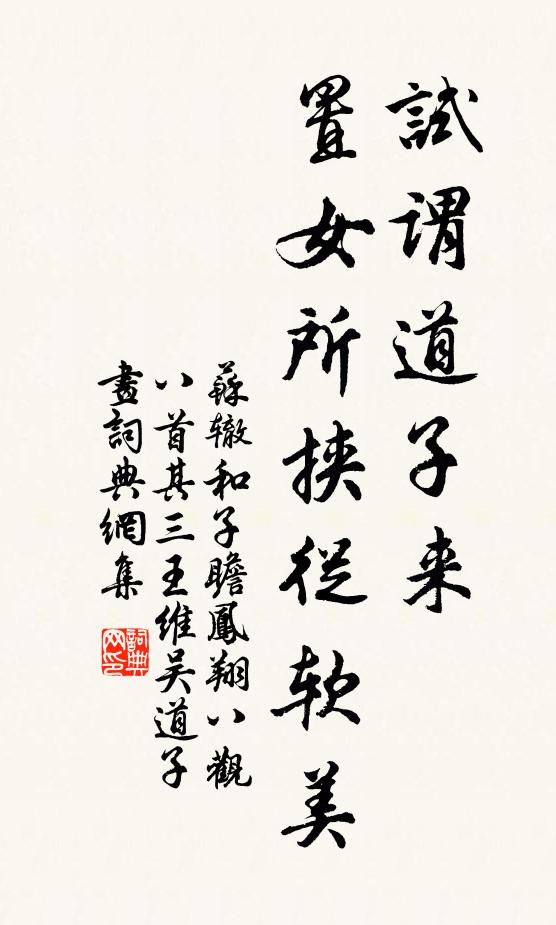 試謂道子来
置女所挾從软美
蘇辙和子瞻鳳翔八觀
八首其三王維吴道子
畫詞典網集
詞典
网印